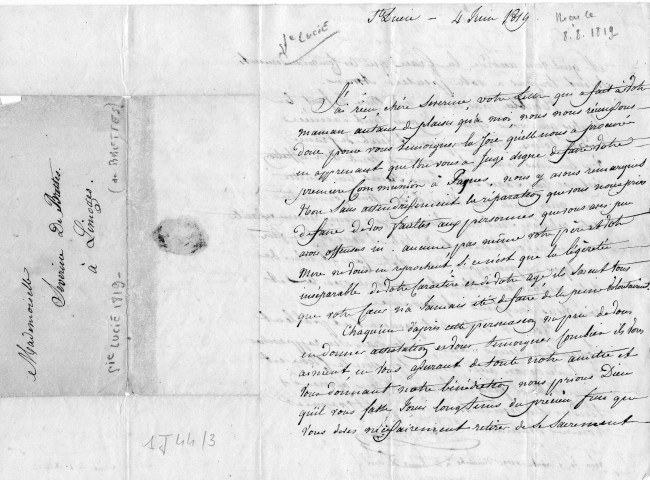 Ste Lucie — 4 Juin 1819
Recue le
8. 8. 1819
Ste LUCIE
J'ai recu chère Severine, votre lettre qui a fait à votre
maman autant de plaisir qu'à moi, nous nous réunissons
donc pour vous temoigner la joie qu'elle nous a procuré
en apprenant que l'on vous a jugé digne de faire votre
première Communion à Paques. nous y avons remarqués
Non Sans attendrissement la réparation que vous nous priés
de faire de vos fautes aux personnes que vous avés pu
avoir offensés ici. aucune pas même votre père et votre
Mere ne vous en reprochent si ce n'est que la légèreté
inséparable de votre Caractère et de votre age ils savent tous
que votre Coeur n'a Jamais été de faire de la peine volontairement
Chaqu'un d'après cette persuasion
en donner attestation et vous temoigner Combien ils vous
aiment en vous assurant de toute notre amitié et
vous donnant notre bénédiction, nous prions Dieu
qu'il vous fasse Jouir longtems du précieux fruit que
vous devés nécessairement retirer de ce Sacrement
Mademoiselle
Severine De Brettes.
à Limoges.
(de BRETTES)
Ste LUCIE 1819-
1J 44/3